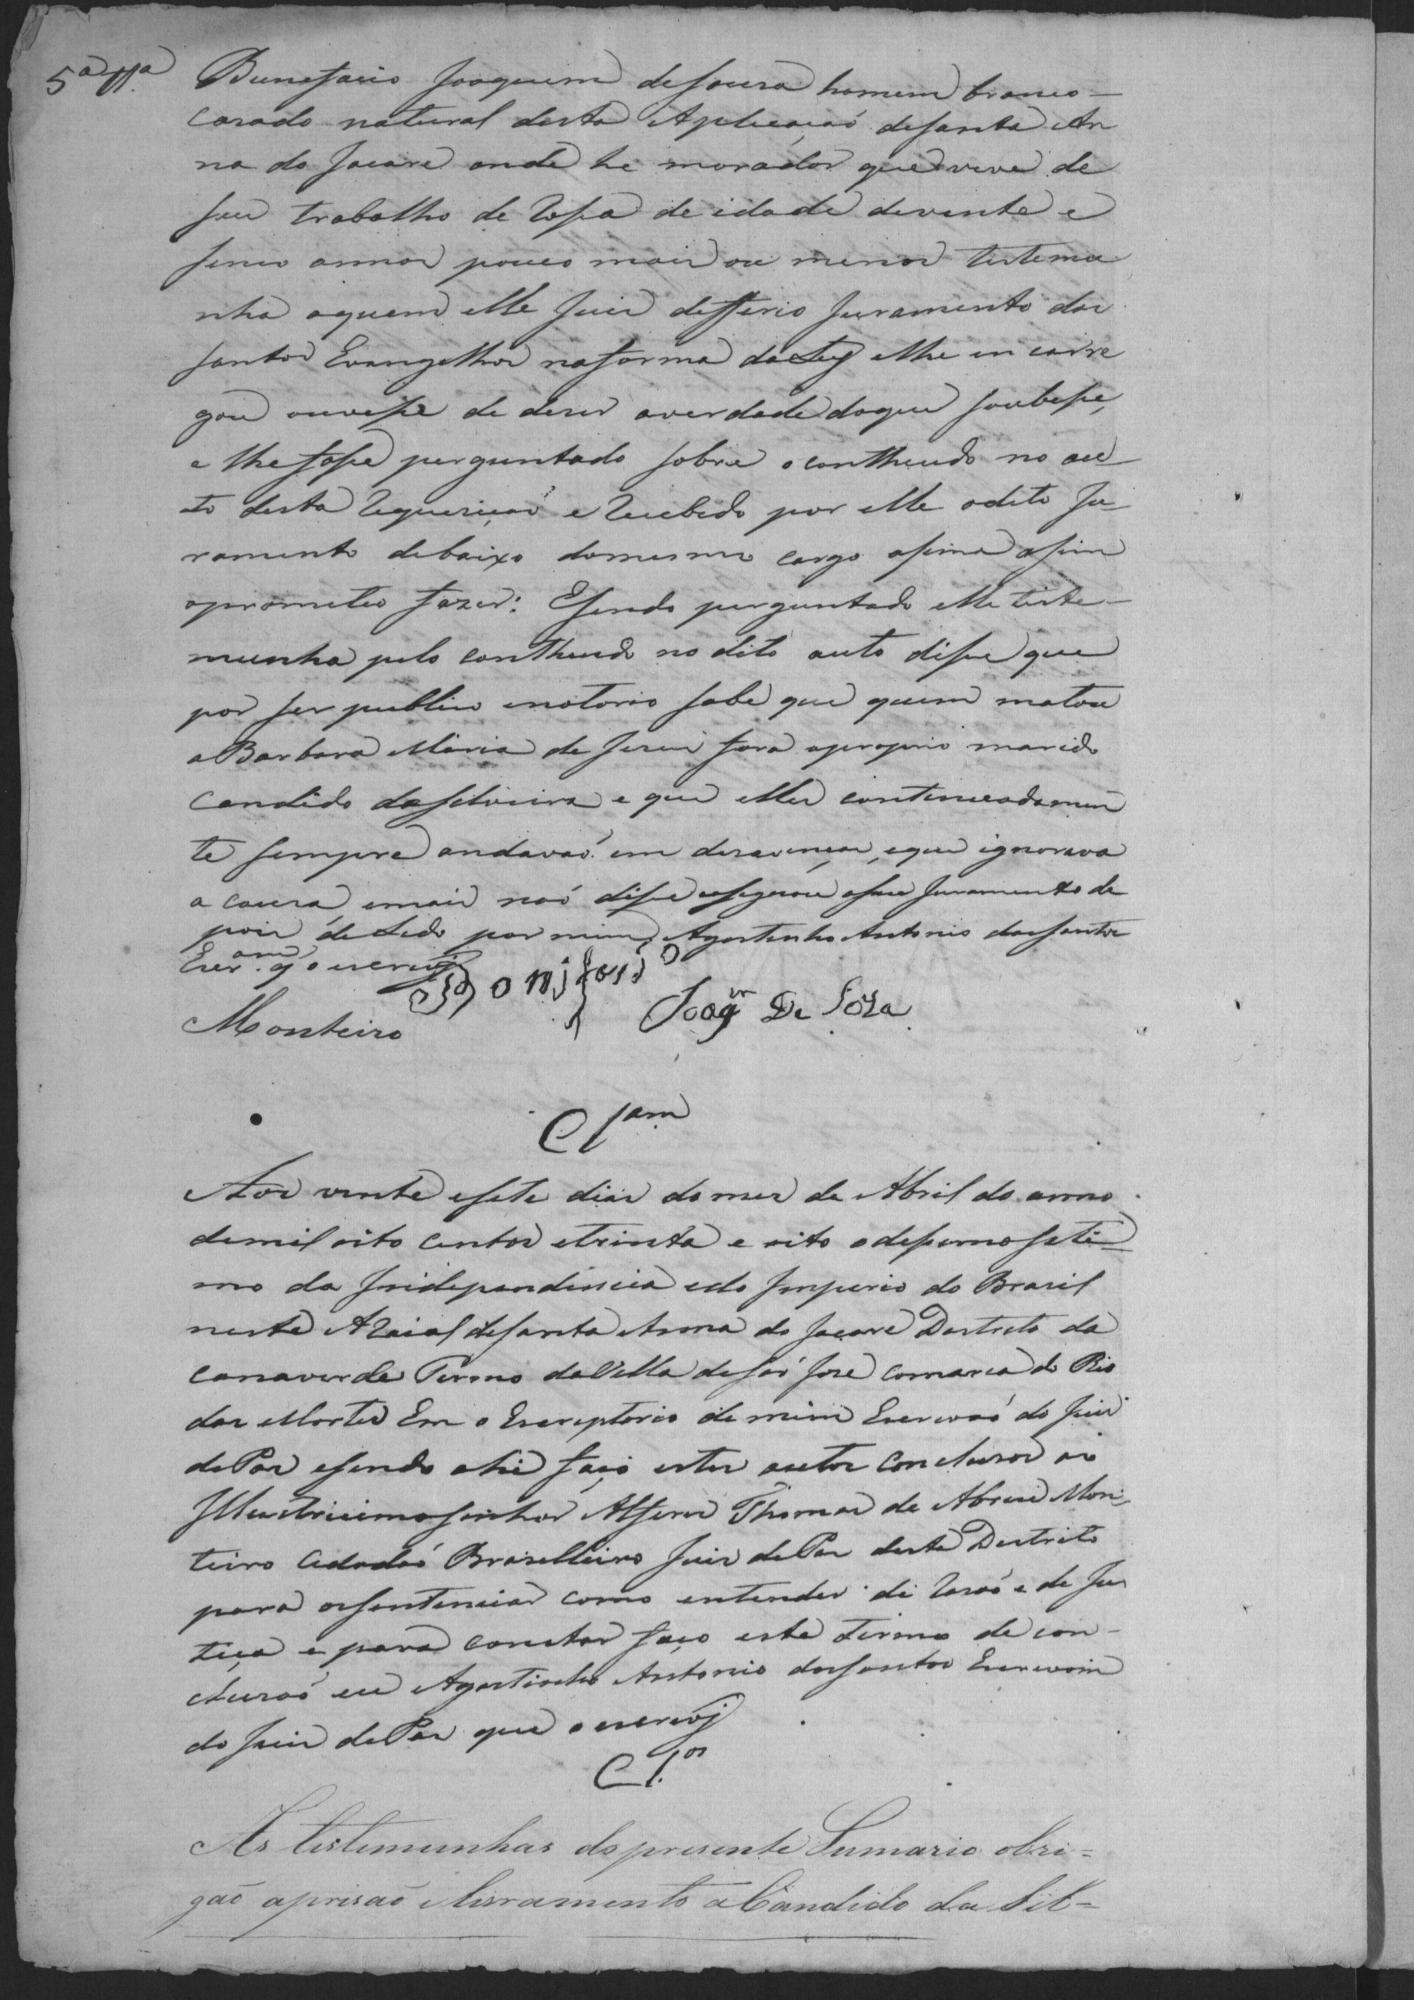 5ª tta
Bunefacio Joaquim deSouza homem branco
cazado natural desta Aplicacaó deSanta An
na do Jacare onde he morador que vive de
seu trabalho de rosa de idade devinte e
sinco annos pouco mais ou menos testemu
nha aquem elle Juis defferio Juramento dos
Santos Evangelhos naforma daLey elhe in carre
gou ouvese de dizer averdade doque soubese,
e lhe fose perguntado sobre ocontheudo no au
to desta requerição e recebido por elle odito Ju
ramento debaixo domesmo cargo asima asim
oprometeo fazer: Esendo perguntado elle teste
munha pelo contheudo no dito auto dise que
por ser publico enotorio sabe que quem matou
a Barbara Maria de Jesus fora oproprio marido
Candido daSilveira e que elles continuadamen
te sempre andavaó em dezavenças, eque ignorava
a cauza emais naó dise easignou oseu Juramento de
pois de Lido por mim Agostinho Antonio dosSantos
Escr.am q̃ o escrevj
Bonifasio
Joaqm De Soza
Monteiro
Clsam
Aos vinte esete dias do mes de Abril do anno
demil oito centos etrinta e oito odesimo seti
mo da Independencia edo Imperio do Brazil
neste Araial deSanta Anna do Jacare Destrito da
Canaverde Termo daVilla deSaó Joze Comarca do Rio
das Mortes Em o Escreptorio de mim Escrivaó do Juis
dePas esendo ahi faço estes autos Conclusos ao
Illustrissimo Senhor Alferes Thomas de Abreu Mon
teiro Cidadaó Brazilleiro Juis dePas deste Destrito
para osentenciar como entender de razaó e de Jus
tiça e para constar faço este termo de con
cluzaó eu Agostinho Antonio dosSantos Escrivam
do Juis dePas que o escrevj
Cl.os
As testemunhas do presente Sumario obri=
gão aprisaõ elivramento a Candido da Sil=